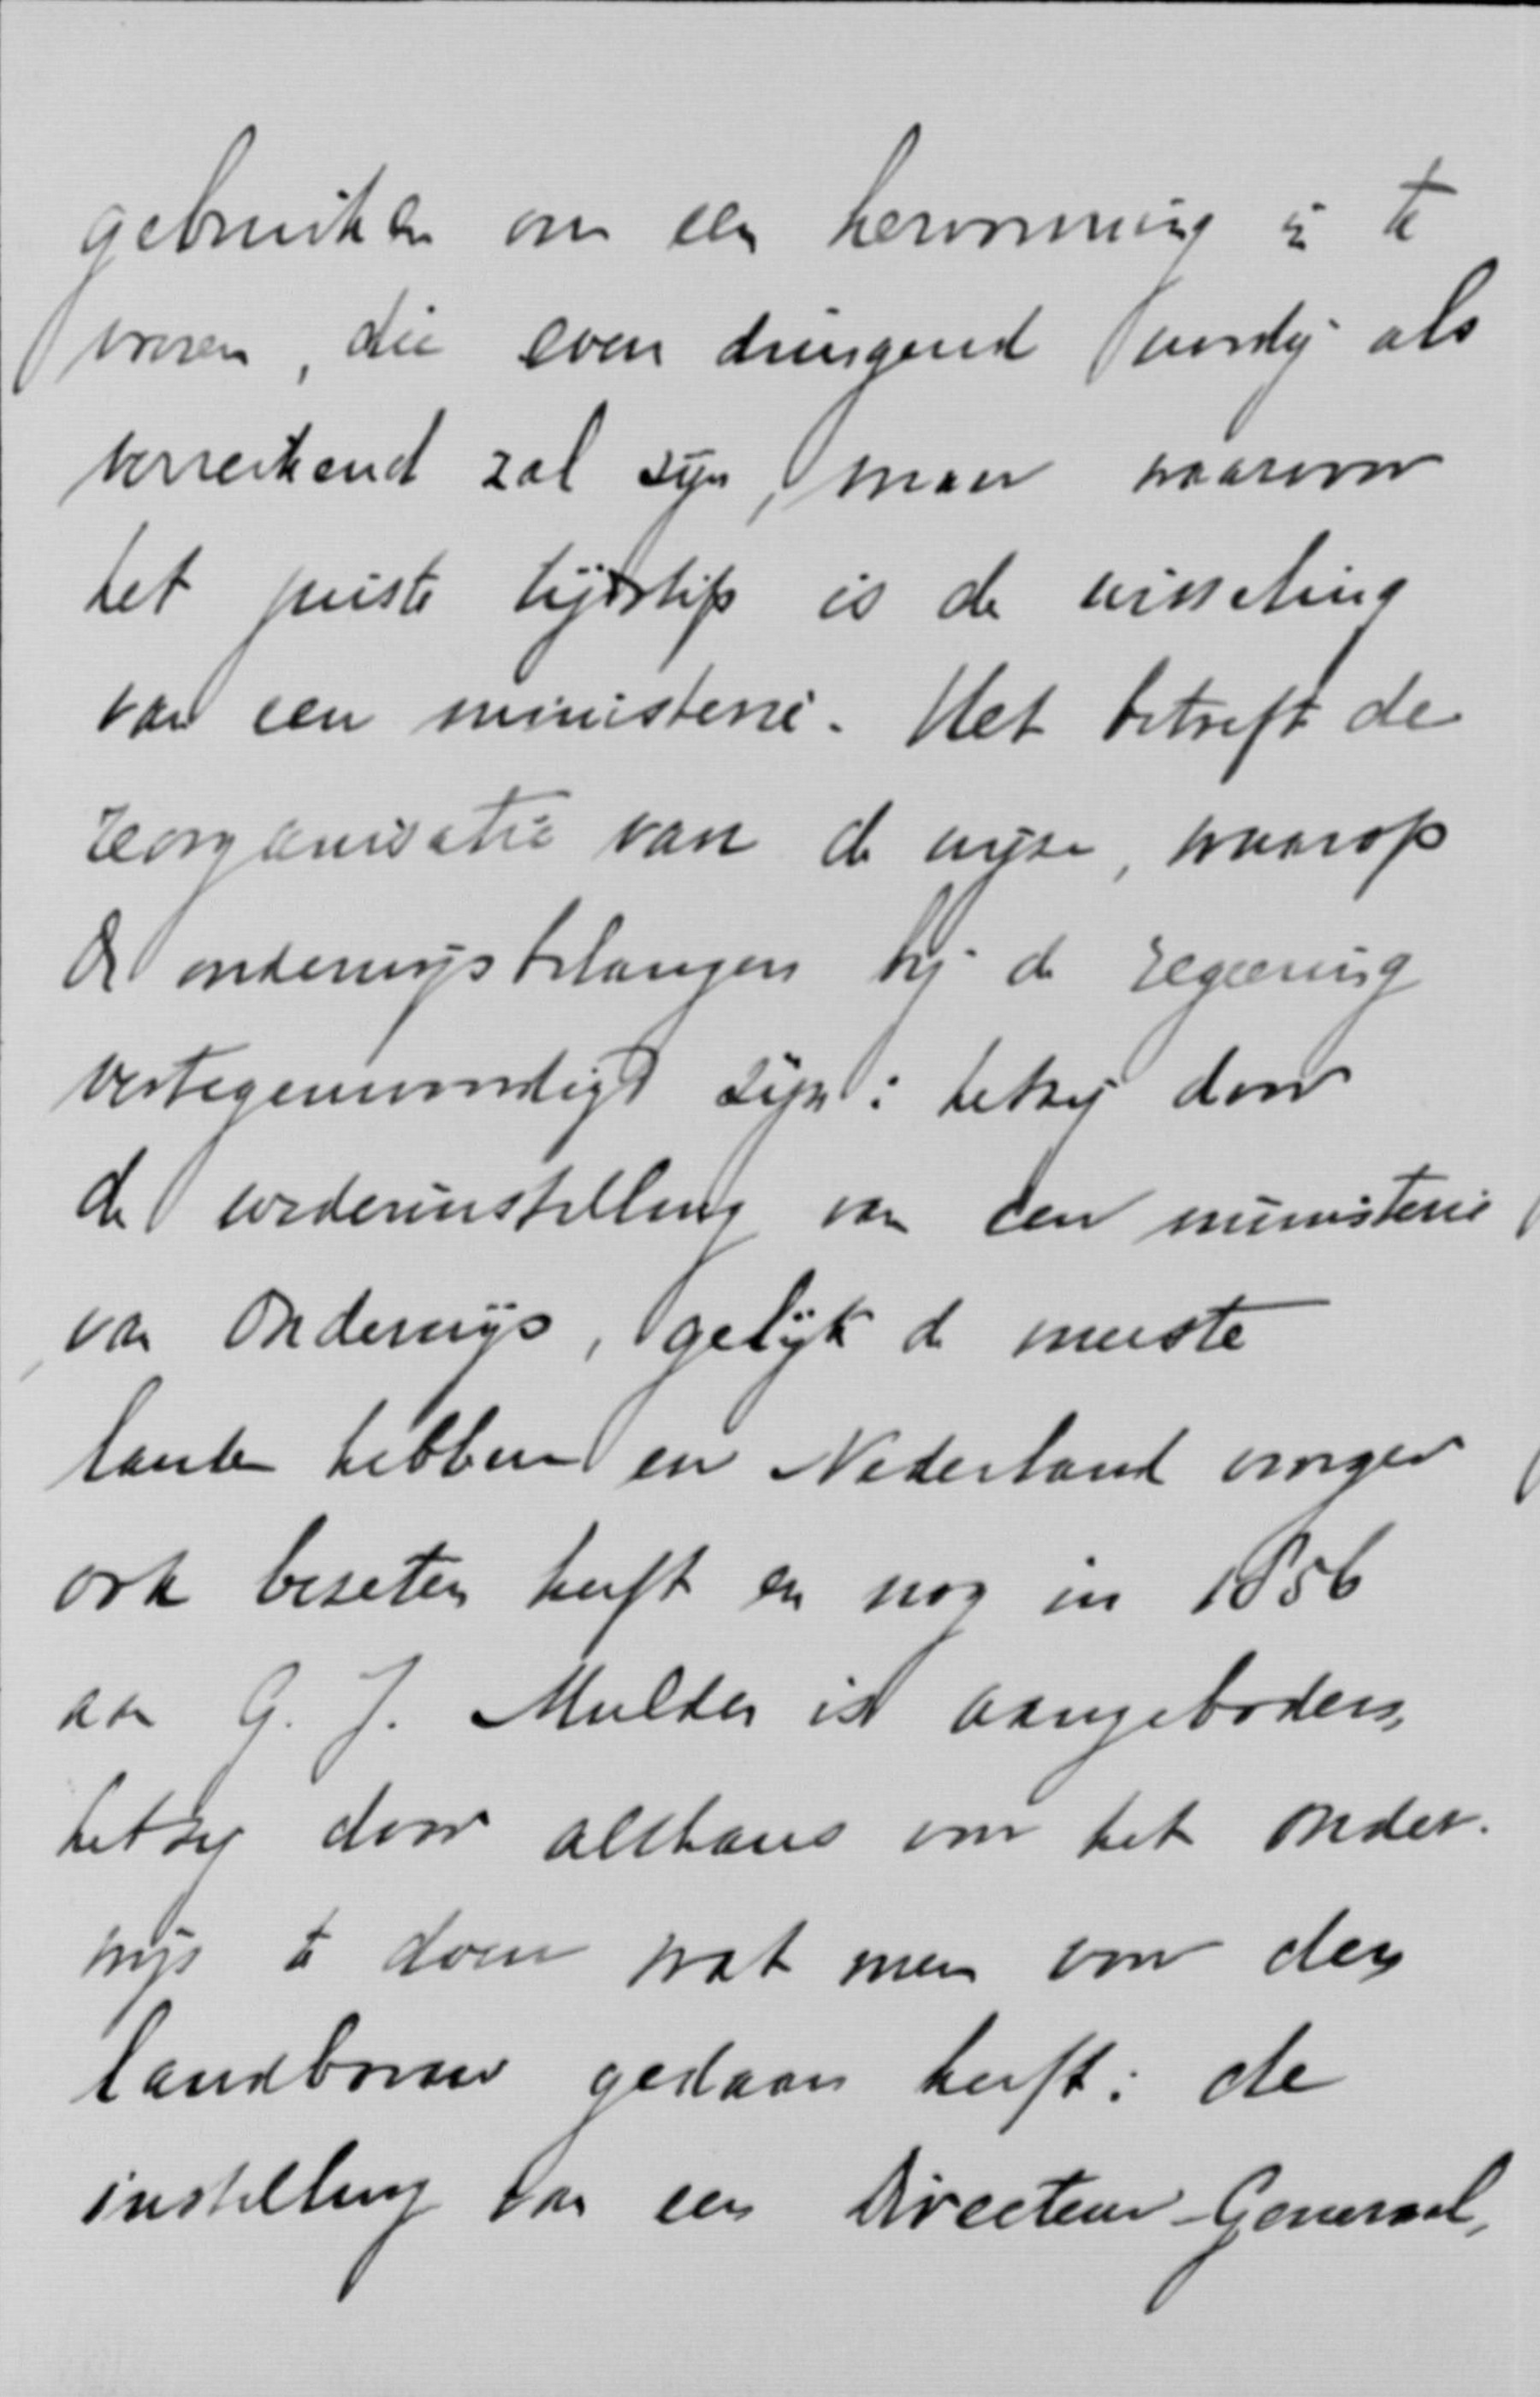 gebruiken om een hervorming in te
voeren, die even dringend noodig als
verreikend zal zijn, maar waarvoor
het juiste tijdstip is de wisseling
van een ministerie. Het betreft de
reorganisatie van de wijze, waarop
de onderwijsbelangen bij de regeering
vertegenwoordigd zijn: hetzij door
de wederinstelling van een ministerie
van Onderwijs, gelijk de meeste
landen hebben en Nederland vroeger
ook bezeten heeft en nog in 1856
aan G. J. Mulder is aangeboden,
hetzij door althans voor het onder-
wijs te doen wat men voor den
landbouw gedaan heeft: de
instelling van een Directeur-Generaal,